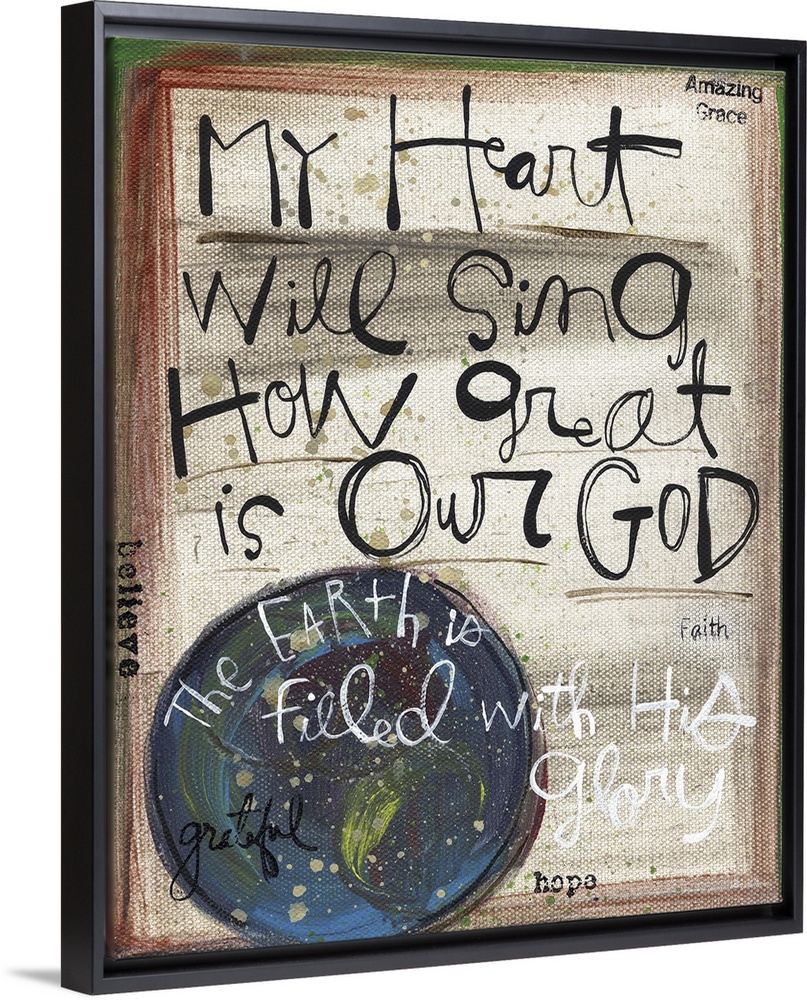 Amazing
Grace
My Heart
Will Sing
How great
is Our GOD
believe
Faith
The EARth is
filled with His
glory
grateful
hope